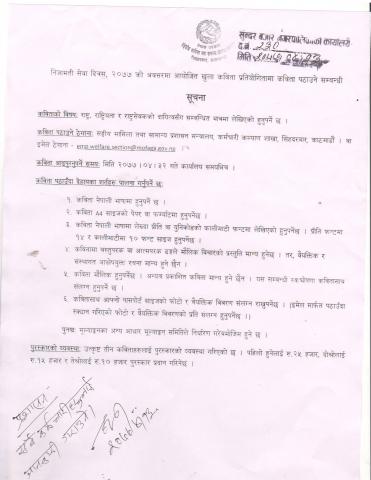 सुन्दर बजार नगरपालिकाको कार्यालय
द.नं. २३०
मिति
निजामती सेवा दिवस, २०७७ को अवसरमा आयोजित खुला कविता प्रतियोगितामा कविता पठाउने सम्बन्धी
सूचना
कविताको विषय: राष्ट्र, राष्ट्रियता र राष्ट्रसेवकको दायित्वसँग सम्बन्धित भावमा लेखिएको हुनुपर्ने छ ।
कविता पठाउने ठेगाना: सङ्घीय मामिला तथा सामान्य प्रशासन मन्त्रालय, कर्मचारी कल्याण शाखा, सिंहदरबार, काठमाडौँ । वा
इमेल ठेगाना - emp.welfare.section@mofaga.gov.np
कविता आइपुग्नुपर्ने समय: मिति २०७७।०४।३२ गते कार्यालय समयभित्र ।
कविता पठाउँदा देहायका शर्तहरु पालना गर्नुपर्ने छ:
१. कविता नेपाली भाषामा हुनुपर्ने छ ।
२. कविता A4 साइजको पेपर वा फर्म्याटमा हुनुपर्ने छ ।
३. कविता नेपाली भाषामा लेख्दा प्रीति वा युनिकोडको कालीमाटी फन्टमा लेखिएको हुनुपर्ने छ । प्रीति फन्टमा
१४ र कालीमाटीमा १० फन्ट साइज हुनुपर्नेछ ।
४. कवितामा वस्तुपरक वा आत्मपरक ढङ्गले मौलिक विचारको प्रस्तुति मान्य हुनेछ । तर, वैयक्तिक र
संस्थागत आक्षेपयुक्त रचना मान्य हुने छैन ।
५. कविता मौलिक हुनुपर्नेछ । अन्यत्र प्रकाशित कविता मान्य हुने छैन । यस सम्बन्धी स्वःघोषणा कवितासाथ
संलग्न हुनुपर्ने छ ।
६. कवितासाथ आफ्नो पासपोर्ट साइजको फोटो र वैयक्तिक विवरण संलग्न राख्नुपर्नेछ । (इमेल मार्फत पठाउँदा
स्क्यान गरिएको फोटो र वैयक्तिक विवरणको प्रति संलग्न हुनुपर्नेछ) ।
पुनश्च: मूल्याङ्कनका अन्य आधार मूल्याङ्कन समितिले निर्धारण गरेबमोजिम हुने छ ।
पुरस्कारको व्यवस्था: उत्कृष्ट तीन कविताहरुलाई पुरस्कारको व्यवस्था गरिएको छ । पहिलो हुनेलाई रु.२५ हजार, दोश्रोलाई
रु.१५ हजार र तेश्रोलाई रु.१० हजार पुरस्कार प्रदान गरिनेछ ।
सबै कर्मचारीहरुलाई
जानकारी गराउने।